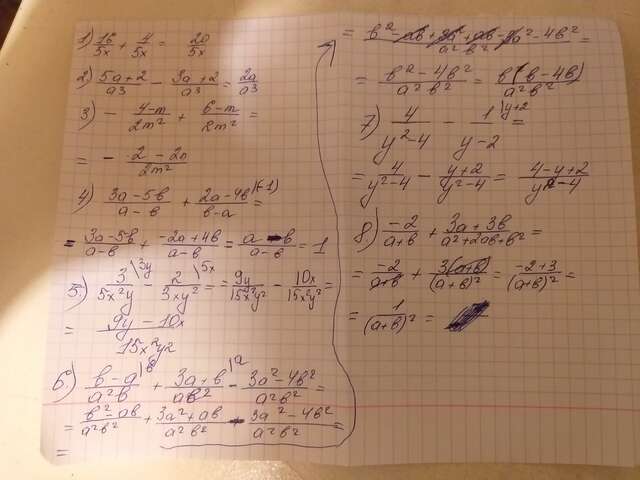 5x + 4/5x = 20/5x
2) 5a+2/a³ - 3a+2/a³ = 2a/a³
3) - 4-m/2m² + 6-m/2m² =
4) 3a-5b/a-b + 2a-4b/b-a =
= 3a-5b/a-b + -2a+4b/a-b = a-b/a-b = 1
5) 3/5x²y - 2/3xy² = 9y/15x²y² - 10x/15x²y² =
= 9y-10x/15x²y²
6) b-a/a²b + 3a+b/ab² - 3a²-4b²/a²b² =
= b²-ab/a²b² + 3a²+ab/a²b² - 3a²-4b²/a²b² =
=
= b²-4b²/a²b² = b(b-4b)/a²b²
7) 4/y²-4 - 1/y-2 =
= 4/y²-4 - y+2/y²-4 = 4-y+2/y²-4
8) -2/a+b + 3a+3b/a²+2ab+b² =
= -2/a+b + 3(a+b)/(a+b)² = -2+3/(a+b)² =
= 1/(a+b)² =